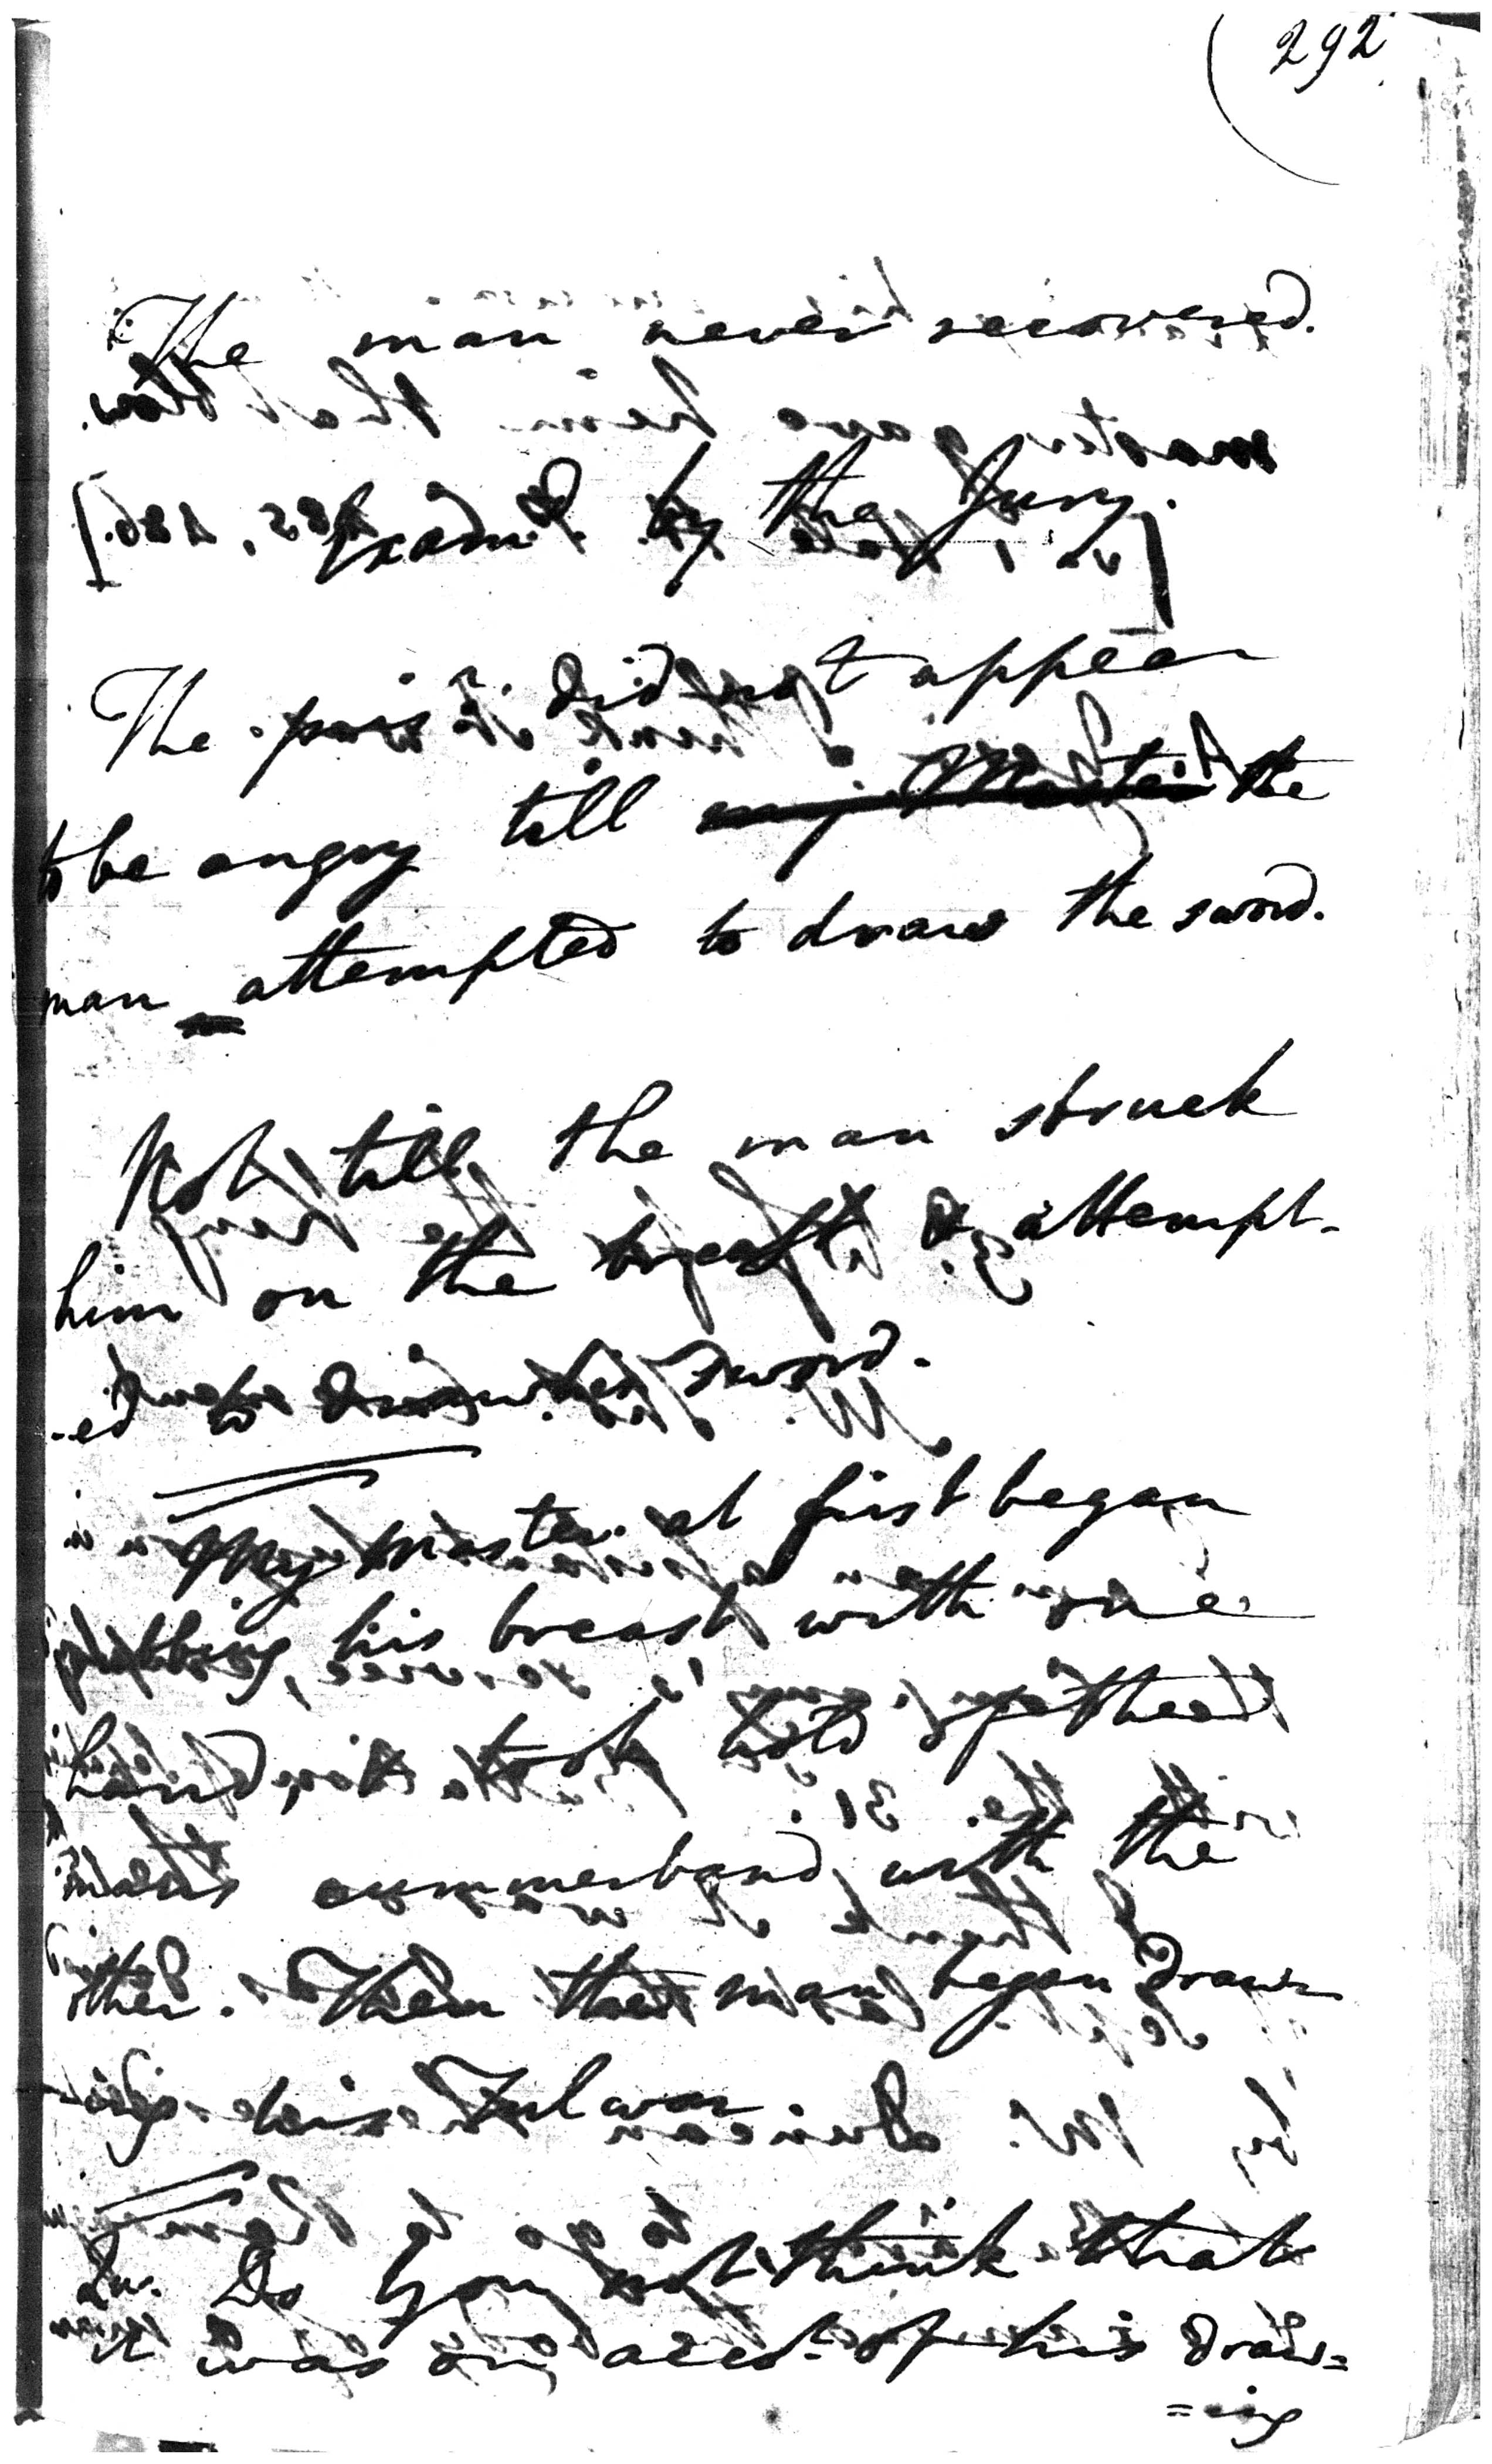 292
The man never recovered.
Exam.d by the Jury.
The pris.r did not appear
to be angry till my Master the
man attempted to draw the sword.
Not till the man struck
him on the breast & attempt-
-ed to draw his sword.
My master at first began
his breast with one
hand, & took hold of the
man's cummerband with the
other. Then the man began draw-
-ing his Tulwar
Qu. Do you not think that
it was on acct. of his draw=
=ing